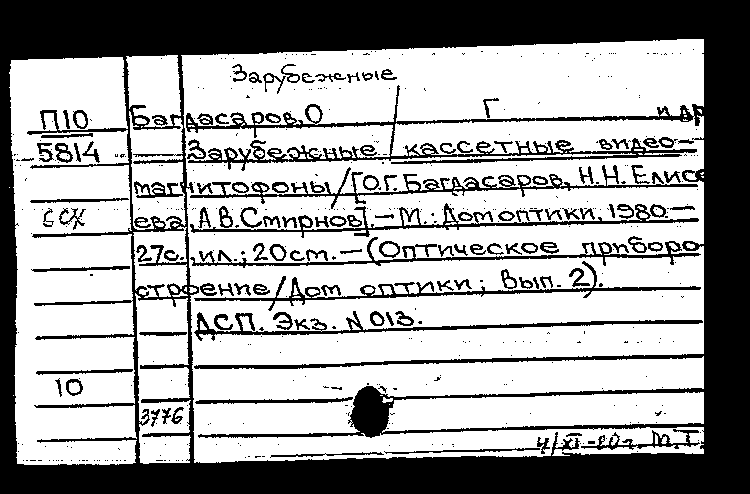 Зарубежные
П10 Багдасаров, О Г и др
5814 Зарубежные кассетные видео-
магнитофоны/[О.Г. Багдасаров, Н.Н. Елисе
ссх ева, А.В. Смирнов].-М.: Дом оптики, 1980.-
27с., ил.; 20см.-(Оптическое приборо
строение/Дом оптики; Вып. 2).
ДСП. Экз. N 013.
10
3776
4/XI-80г. М.Т.